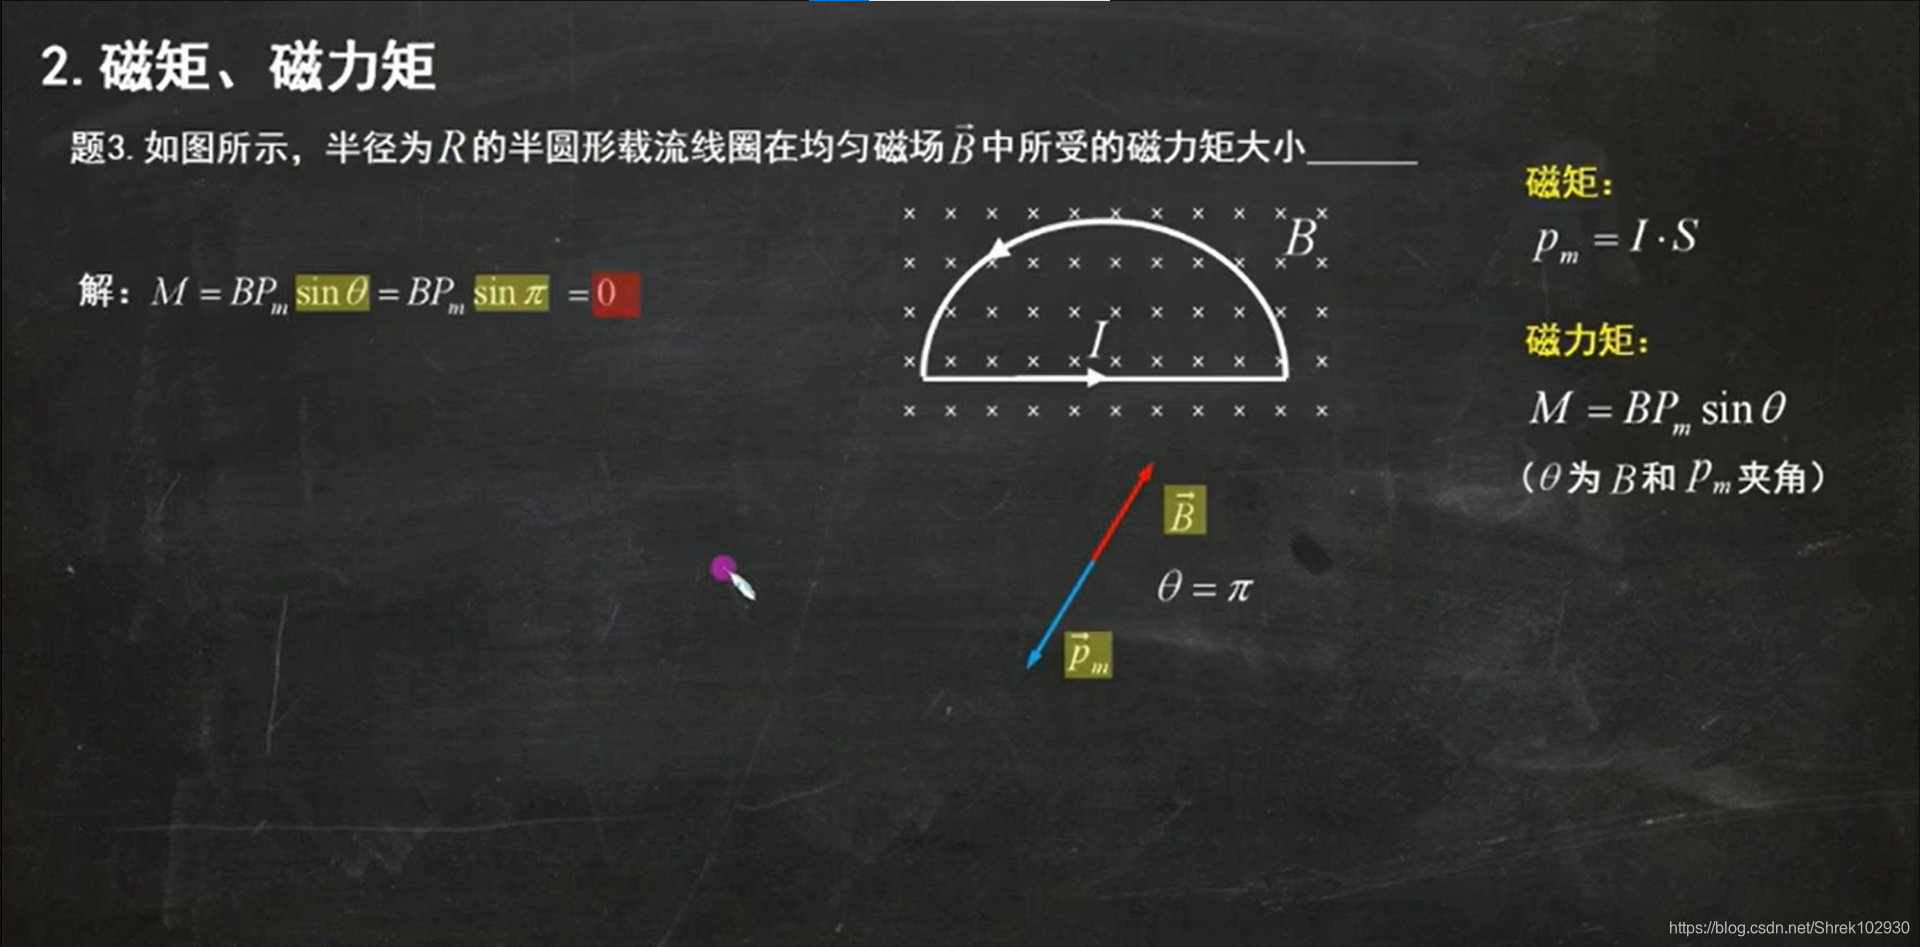 2.磁矩、磁力矩
题3.如图所示，半径为R的半圆形载流线圈在均匀磁场B⃗中所受的磁力矩大小______
解：M = BPₘ sin θ = BPₘ sin π = 0
B
I
B⃗
θ = π
p⃗ₘ
磁矩：
pₘ = I · S
磁力矩：
M = BPₘ sin θ
（θ为 B和 Pₘ夹角）
https://blog.csdn.net/Shrek102930